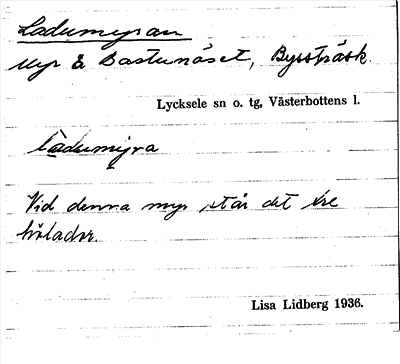 Ladumyran
Myr å Bastunäset, Byssträsk.
Lycksele sn o. tg, Västerbottens l.
ladumyra
Vid denna myr står det tre
hölador.
Lisa Lidberg 1936.